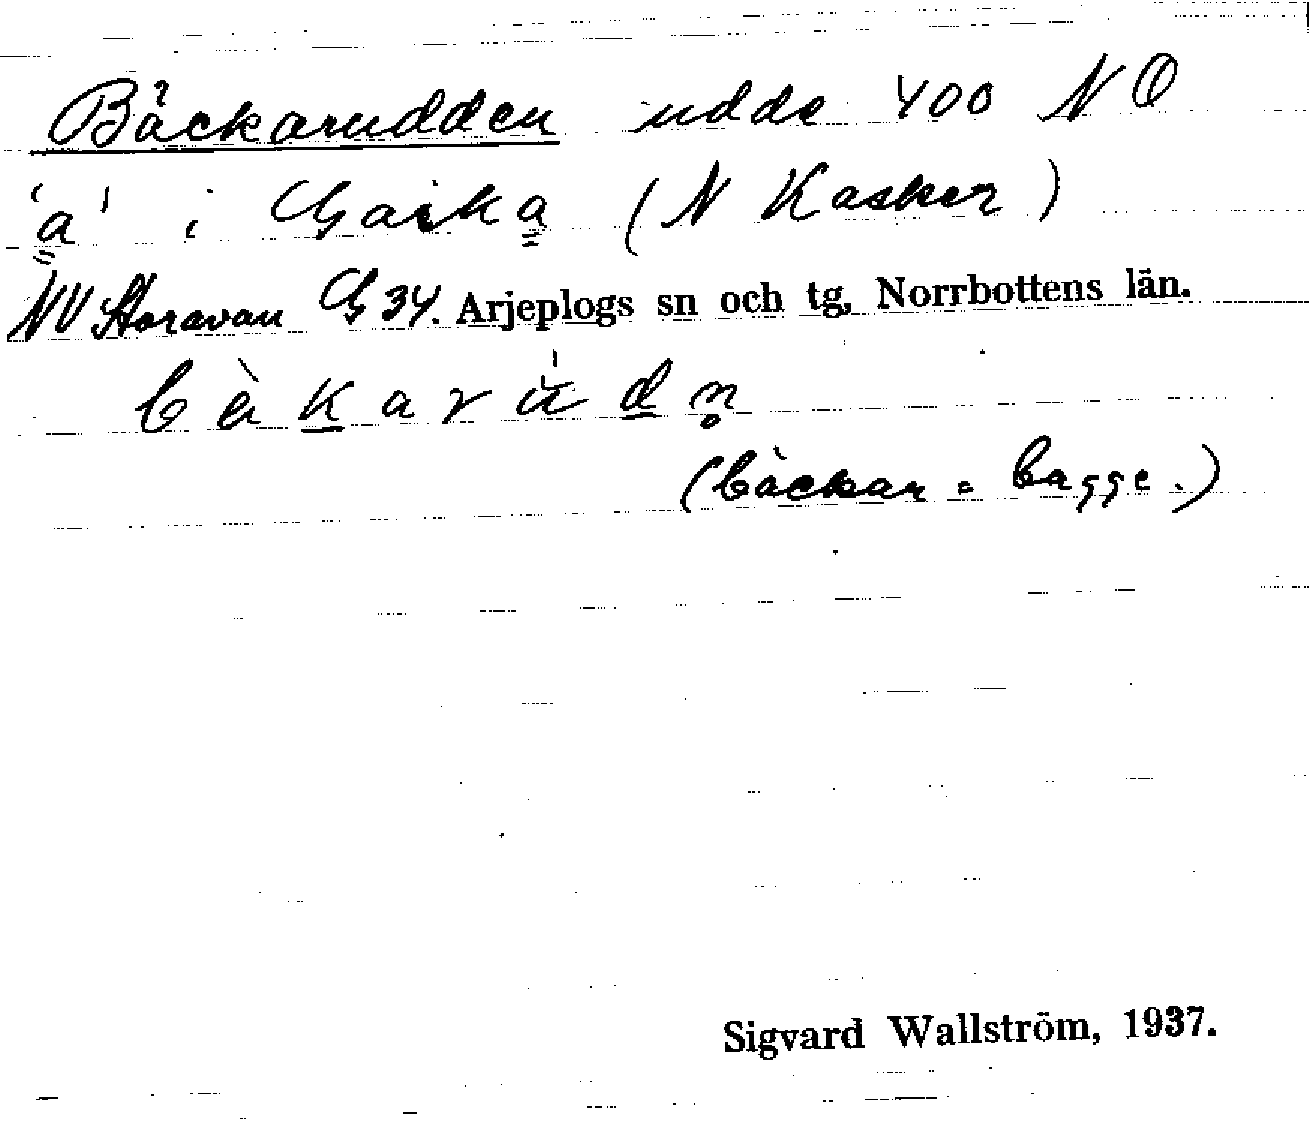 Bäckarudden udde 400 NO
'a' i Gaika (N Kasker)
NV Storavan G 34. Arjeplogs sn och tg, Norrbottens län.
bèkarúdn̥
(bäckar = bagge.)
Sigvard Wallström, 1937.